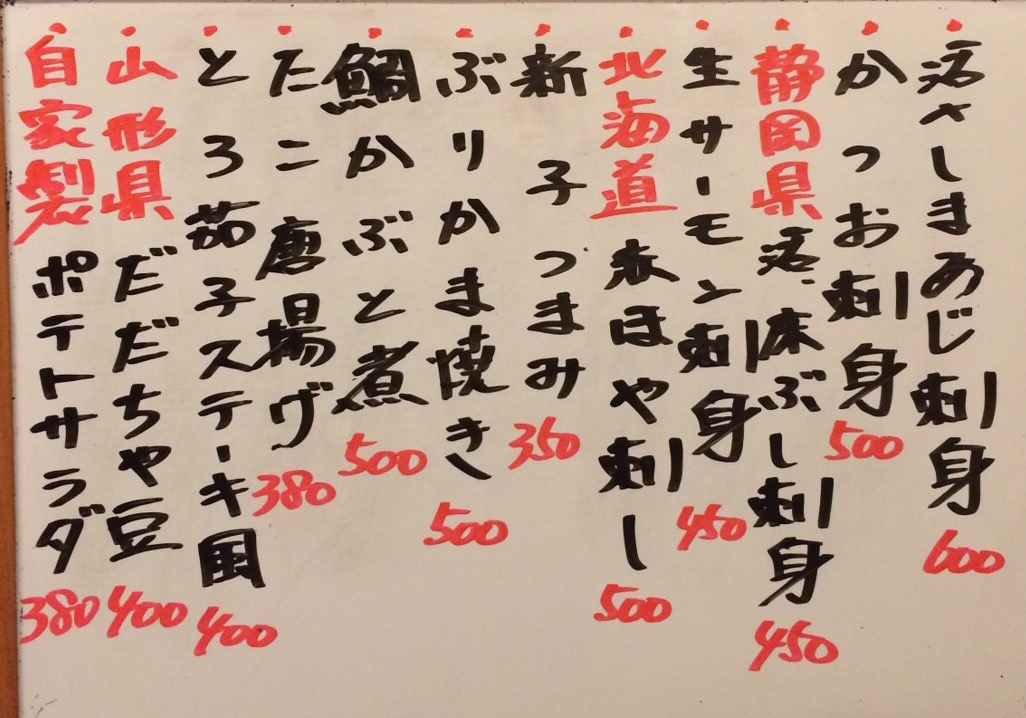 活〆しまあじ刺身 600
かつお刺身 500
静岡県 活、床ぶし刺身 450
生サーモン刺身 450
北海道 赤ほや刺し 500
新子つまみ 350
ぶりかま焼き 500
鯛かぶと煮 500
たこ唐揚げ 380
とろろ茄子ステーキ風 400
山形県 だだちゃ豆 400
自家製 ポテトサラダ 380